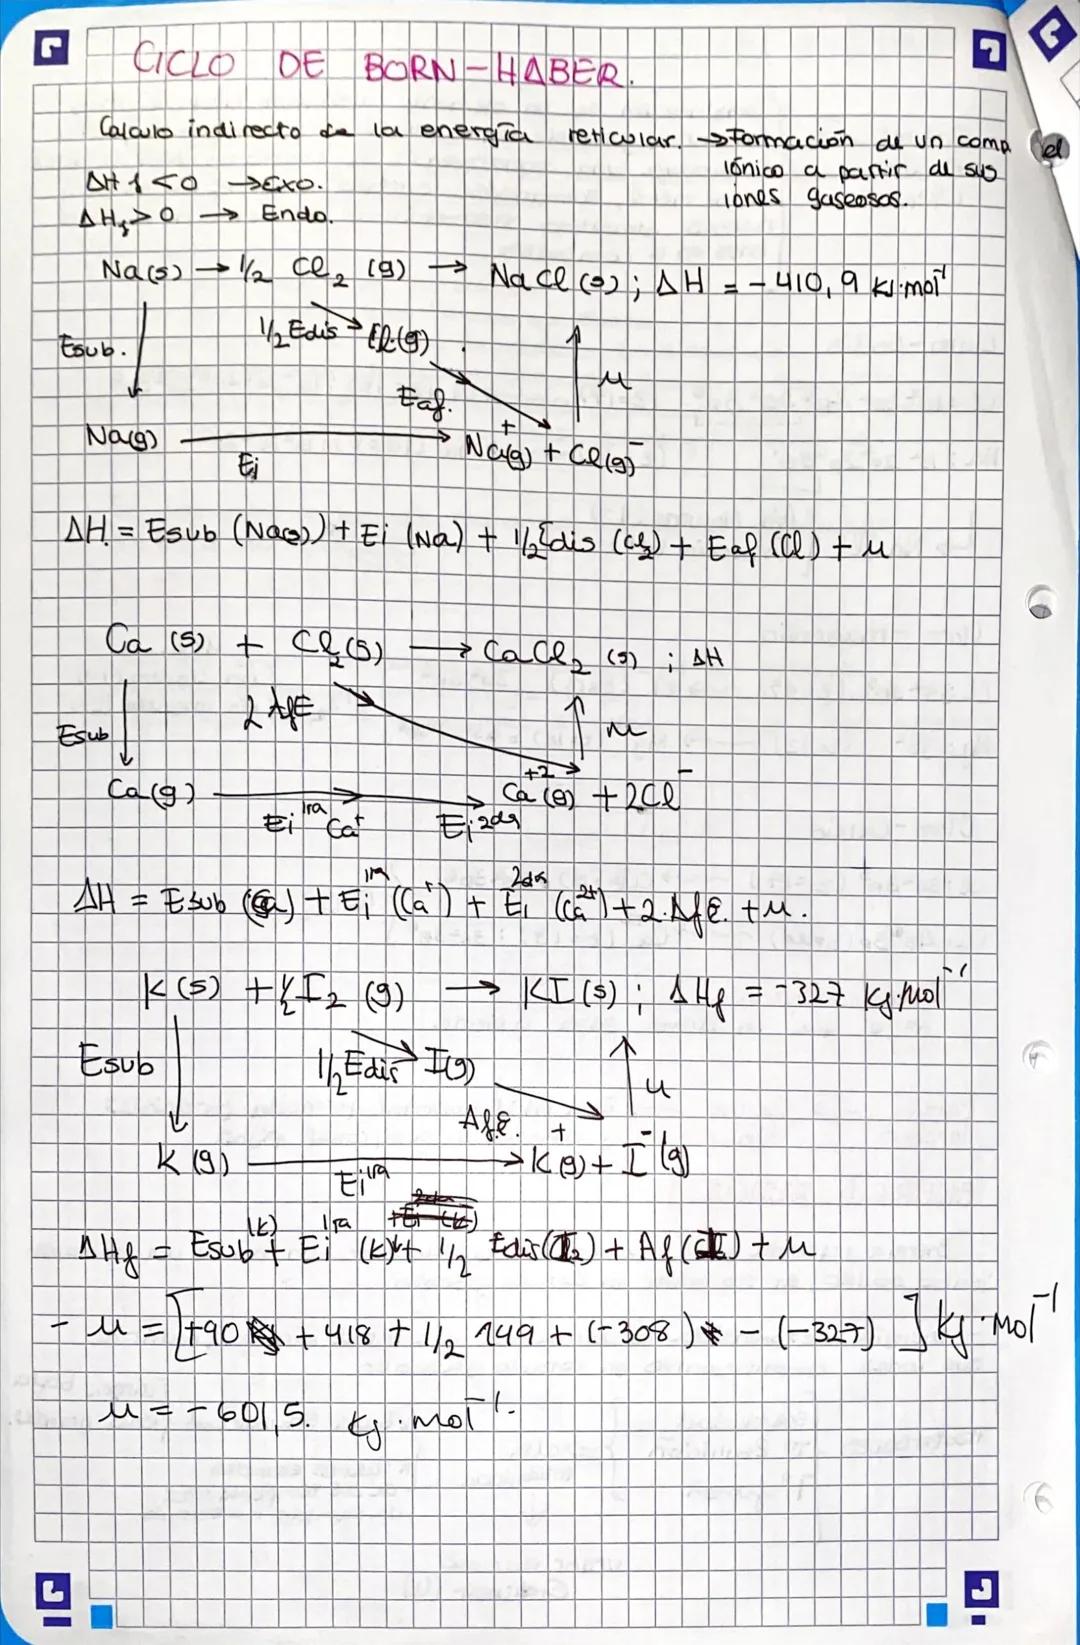 CICLO DE BORN-HABER.
Calculo indirecto de la energía reticular. →Formación de un comp
iónico a partir de sus
iones gaseosos.
ΔHf<0 →Exo.
ΔHf>0 → Endo.
Na(s) → 1/2 Cl2 (g) → NaCl(s); ΔH = -410,9 kJ·mol-1
1/2 Edis Cl(g)
Esub.
u
Eaf.
Na(g) → Na+(g) + Cl(g)-
Ei
ΔH = Esub (Na(s)) + Ei (Na) + 1/2 Edis (Cl2) + Eaf (Cl) + u
Ca (s) + Cl2(s) → CaCl2 (s) ; ΔH
2 AfE
Esub
u
Ca(g) → Ca+2(g) + 2Cl-
Ei 1ra Ca+ Ei 2da
ΔH = Esub (Ca) + Ei 1ra (Ca+) + Ei 2da (Ca2+) + 2.AfE. + u.
K(s) + 1/2 I2 (g) → KI(s); ΔHf = -327 kJ·mol-1
Esub
1/2 Edis I(g)
u
Af.E.
K(g) → K+(g) + I-(g)
Ei 1ra
ΔHf = Esub(K) + Ei 1ra (K)+ 1/2 Edis(I2) + Af(I) + u
- u = [+90 + 418 + 1/2 149 + (-308) - (-327) ] kJ·mol-1
u = -601,5. kJ·mol-1.